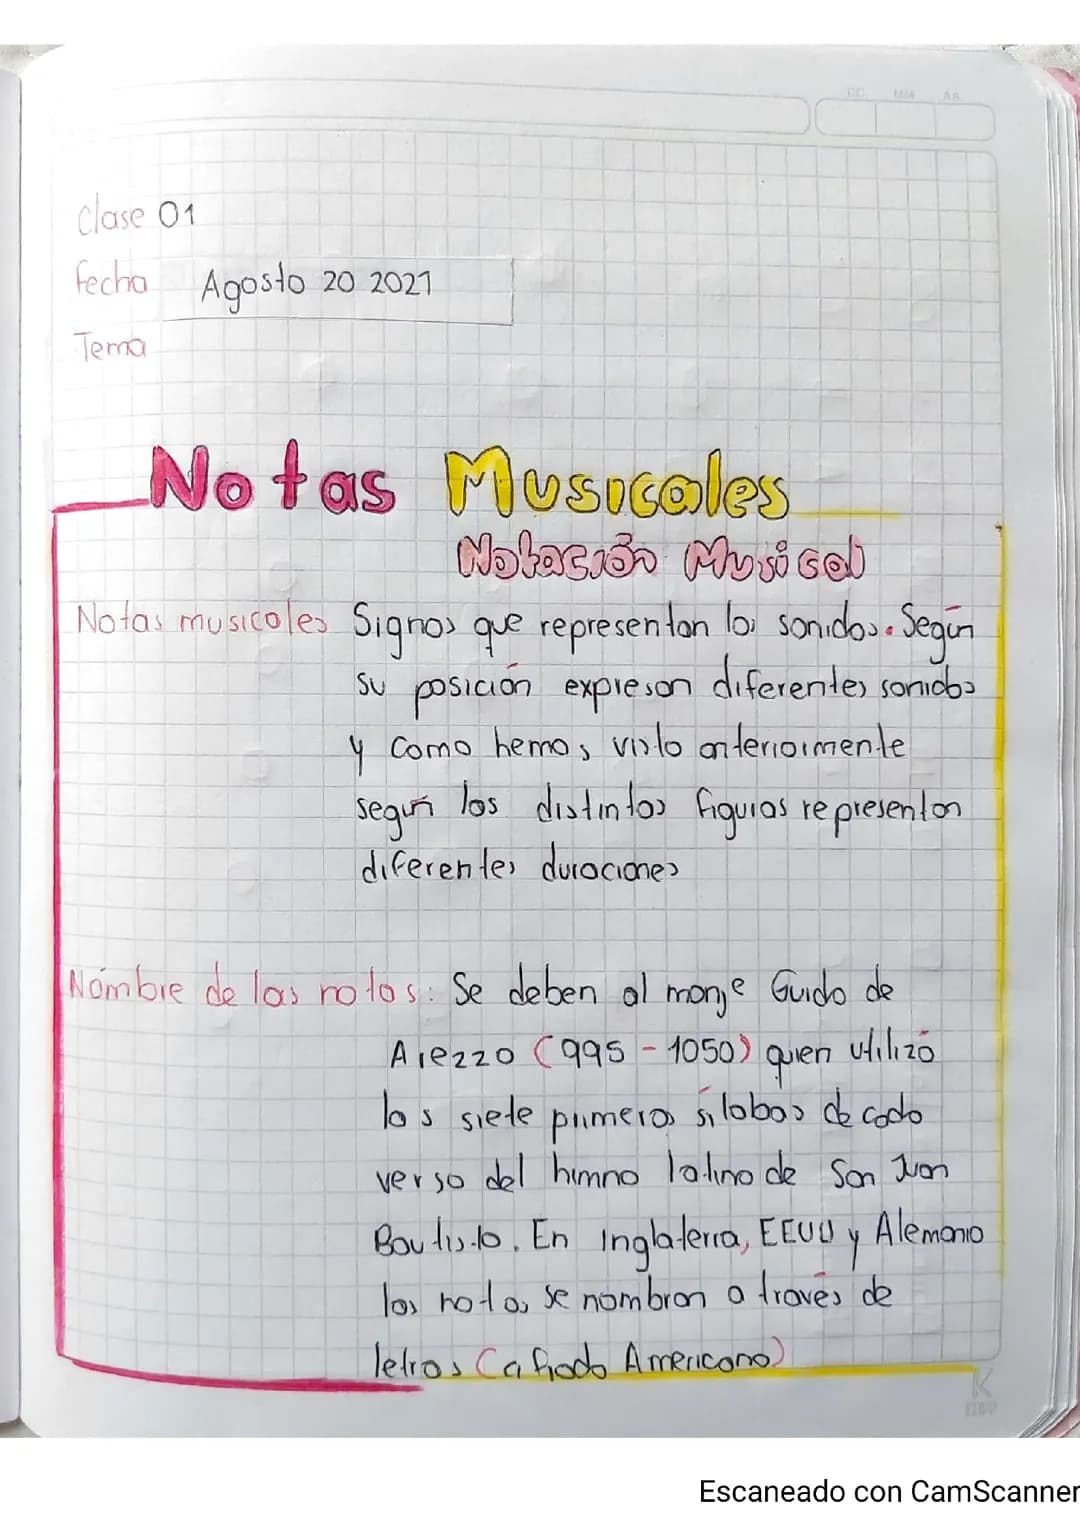 DD MM AA
Clase 01
fecha Agosto 20 2021
Tema
Notas Musicales
Notación Musical
Notas musicales Signos que representan los sonidos. Según
su posición expresan diferentes sonidos
y como hemos visto anteriormente
según las distintas figuras representan
diferentes duraciones
Nombre de las notas: Se deben al monje Guido de
Arezzo (995 - 1050) quien utilizó
las siete primeras sílabas de cada
verso del himno latino de San Juan
Bautista. En Inglaterra, EEUU y Alemania
las notas se nombran a través de
letras (cifrado Americano)
K
Escaneado con CamScanner